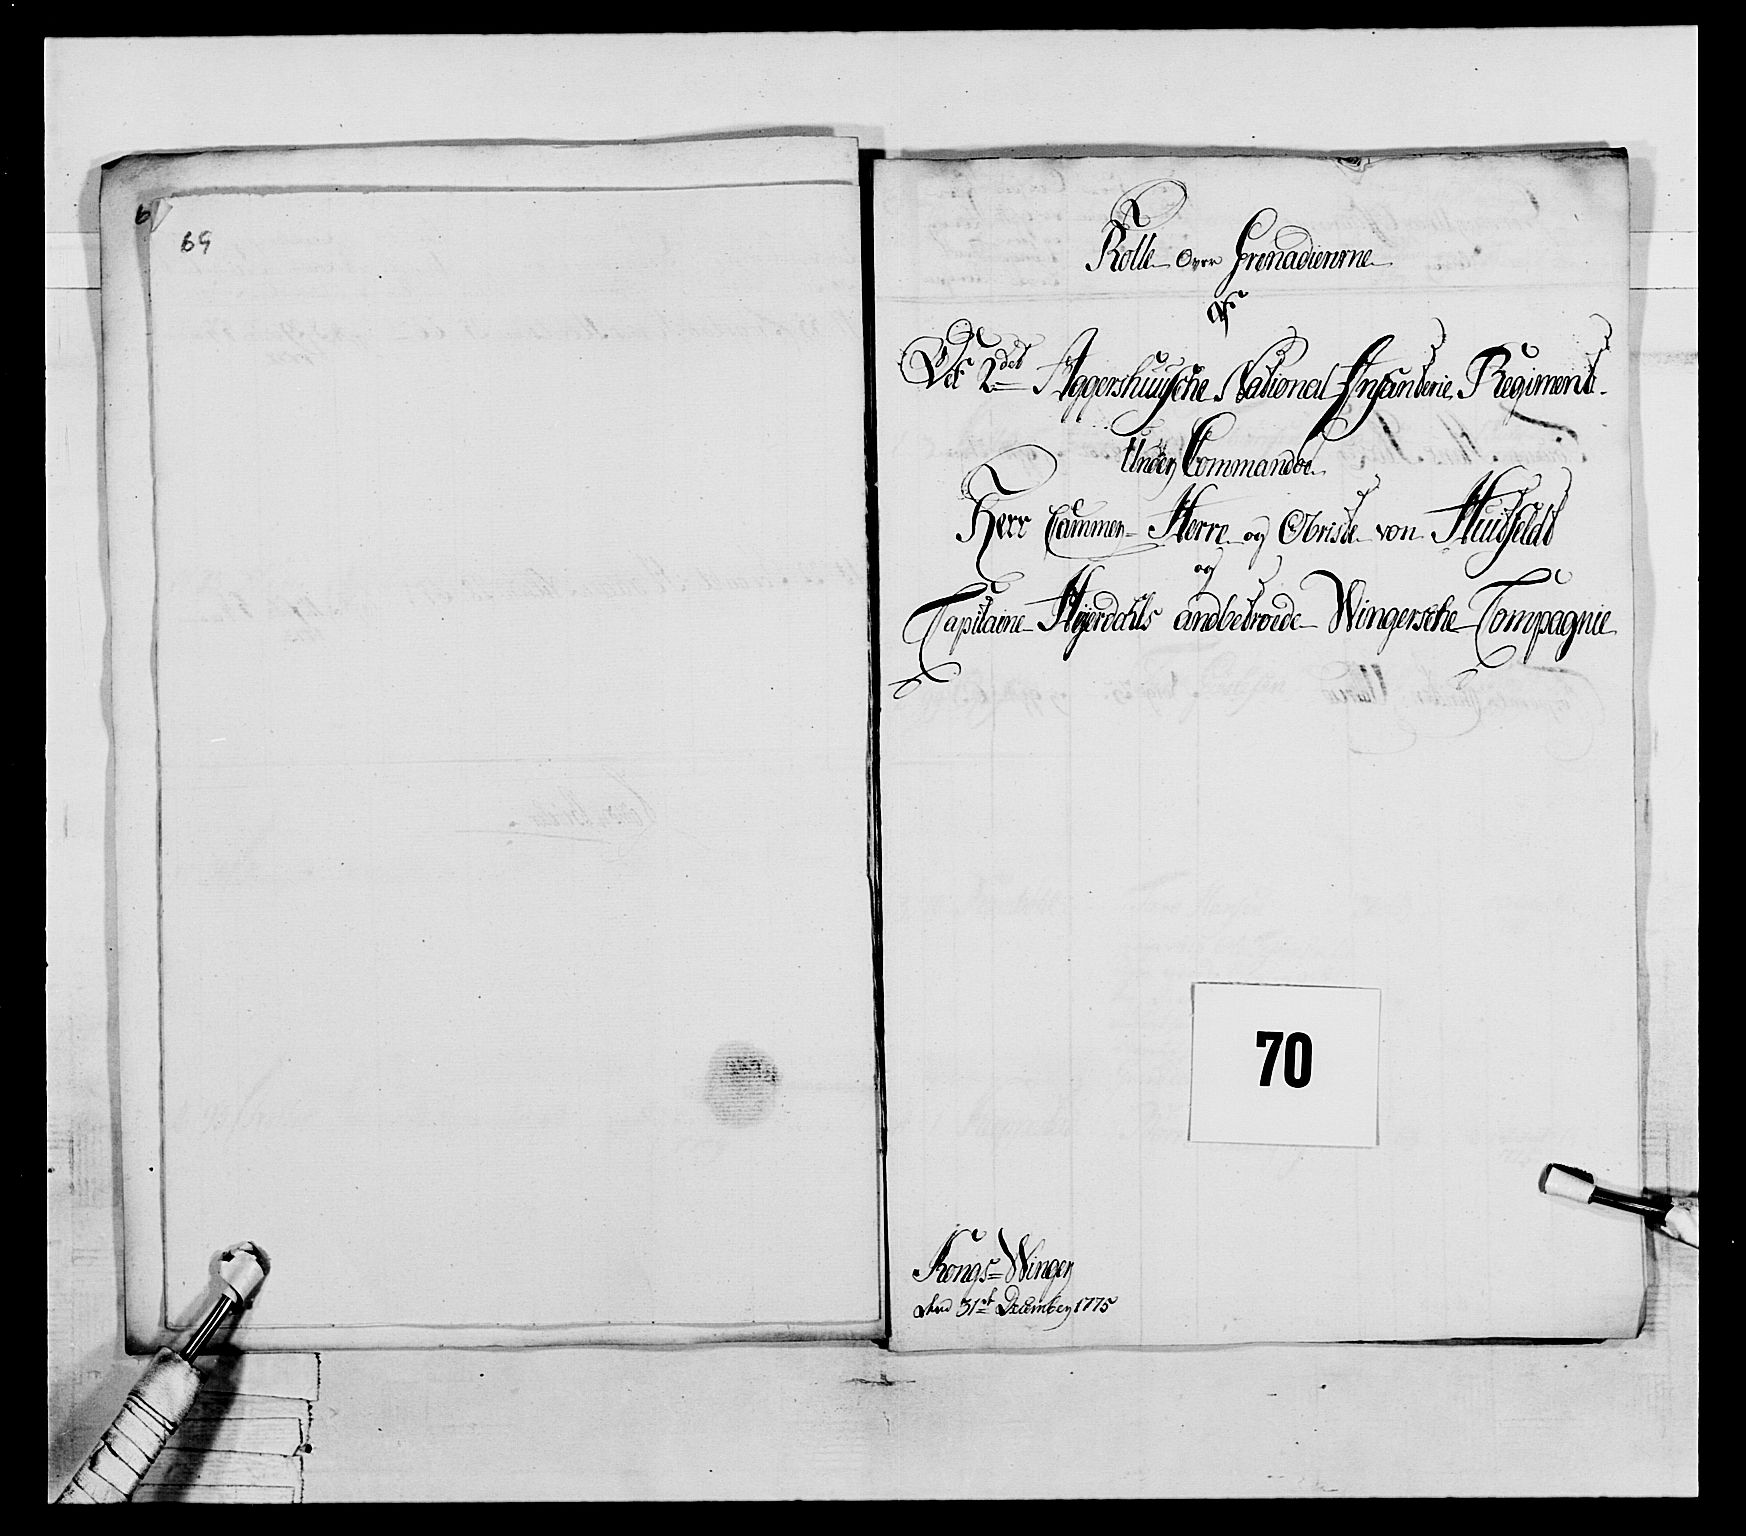 69
Rolle over Grenadiererne
af
Det 2det Aggershuusche National Infanterie Regiment
Under Commando
Herr Cammer-Herre og Obriste von Huitfeldt
og
Capitaine Heyerdahls anbetroede Wingersche Compagnie
70
Kongs=Winger
den 31te December 1775